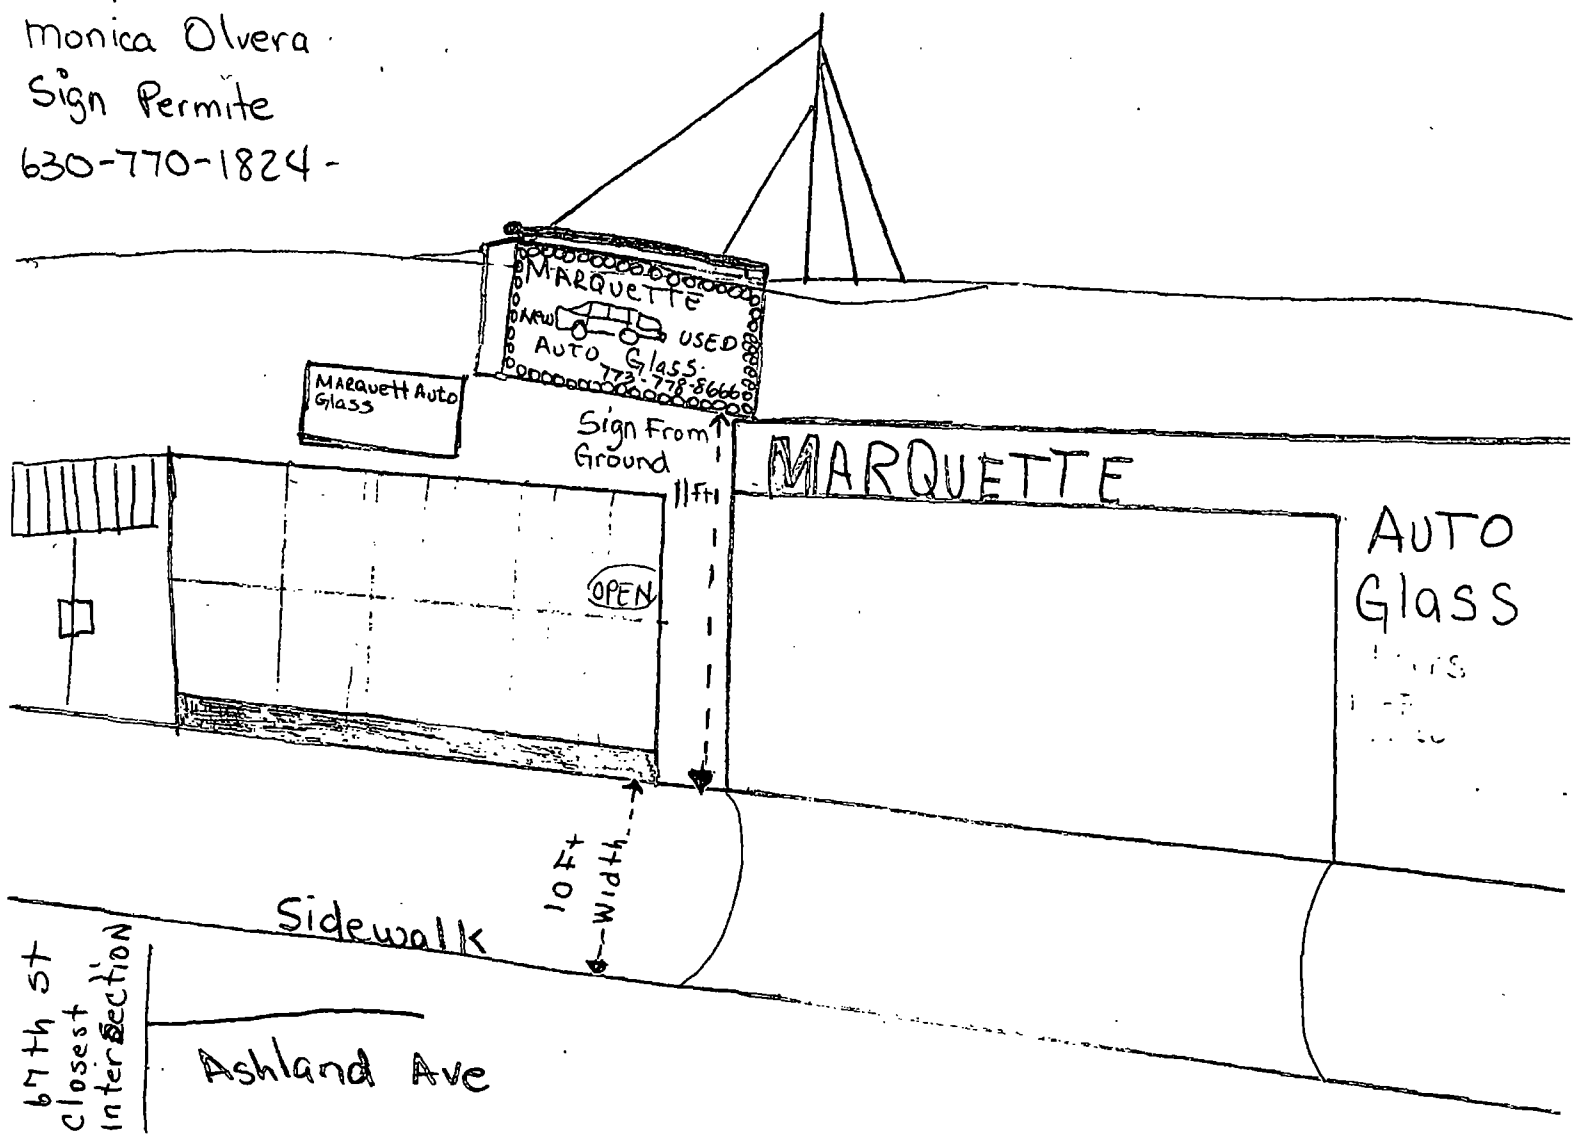 monica Olvera
Sign Permite
630-770-1824-
MARQUETTE
NEW USED
AUTO Glass.
773-778-8666
MARQUETT Auto
Glass
Sign From
Ground
11Ft
MARQUETTE
AUTO
Glass
OPEN
10 Ft
Width
Sidewalk
67th St
Closest
Intersection
Ashland Ave